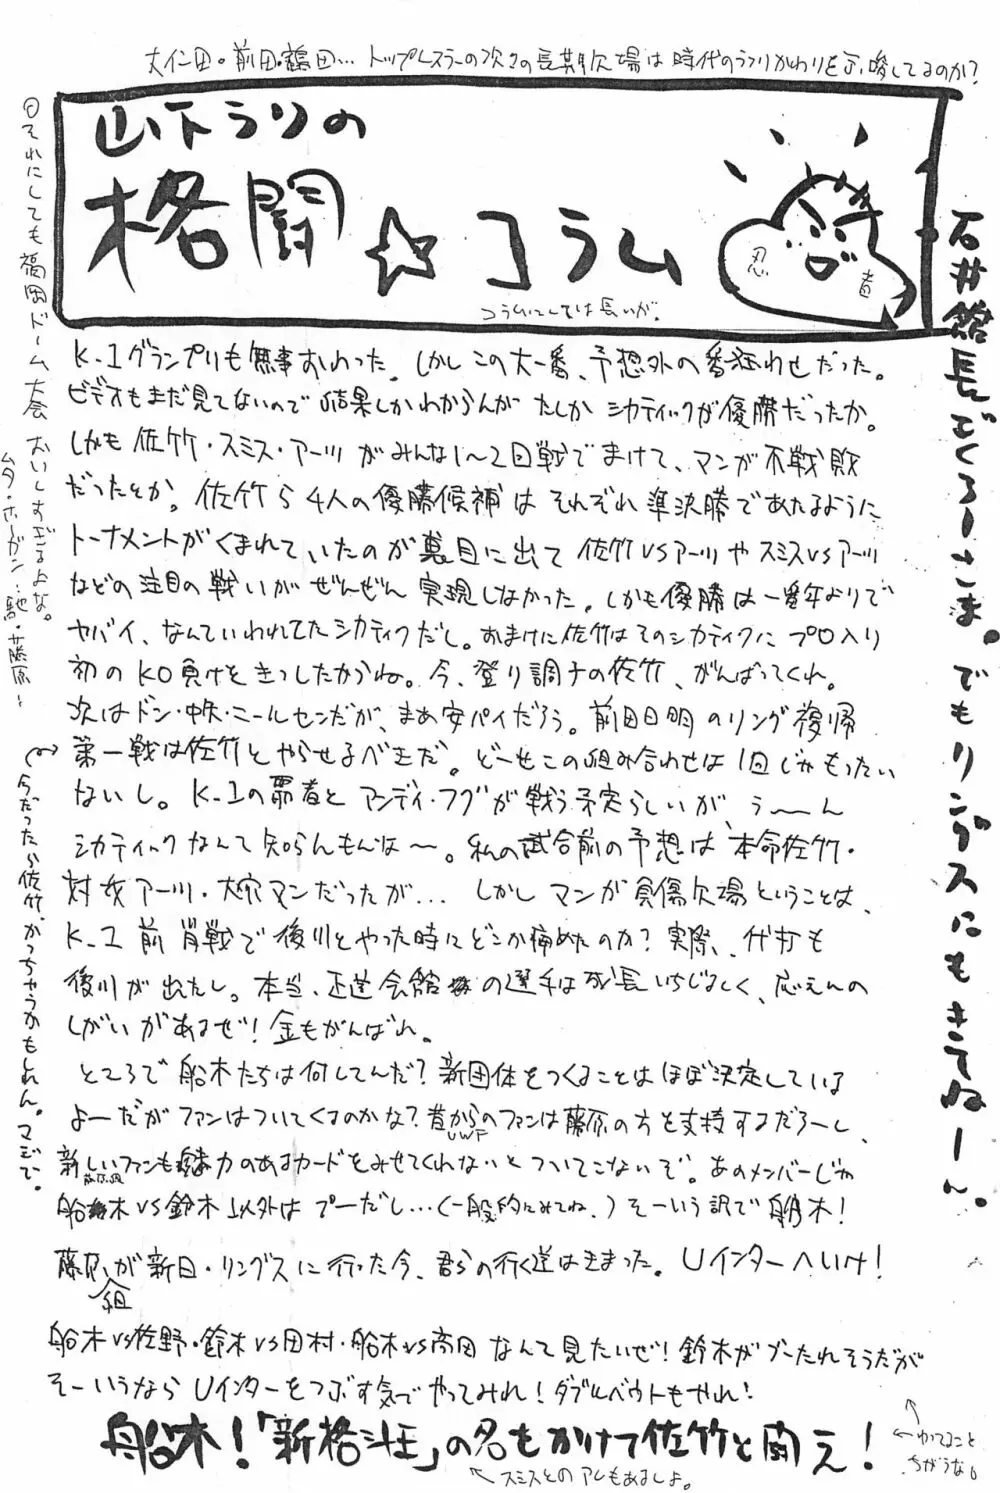 大仁田・前田・鶴田… トップレスラーの次々の長期欠場は時代のうつりかわりを示唆してるのか?
山下うりの
格闘☆コラム
コラムにしては長いが。
忍
者
石井館長ごくろーさま。でもリングスにもきてねーん。
◎それにしても福岡ドーム大会おいしすぎるよな。
ムタ・ホーガン・馳・藤原〜
K-1グランプリも無事おわった。しかしこの大一番、予想外の番狂わせだった。
ビデオもまだ見てないので結果しかわからんがたしかシカティックが優勝だったか。
しかも佐竹・スミス・アーツがみんな1〜2回戦でまけて、マンが不戦敗
だったとか。佐竹ら4人の優勝候補はそれぞれ準決勝であたるように
トーナメントがくまれていたのが裏目に出て佐竹VSアーツやスミスVSアーツ
などの注目の戦いがぜんぜん実現しなかった。しかも優勝は一番年よりで
ヤバイ、なんていわれてたシカティクだし。おまけに佐竹はそのシカティクにプロ入り
初のKO負けときっしたからね。今、登り調子の佐竹、がんばってくれ。
次はドン・中矢・ニールセンだが、まあ安パイだろう。前田日明のリング復帰
第一戦は佐竹とやらせるべきだ。どーもこの組み合わせは1回じゃもったい
ないし。K-1の覇者とアンディ・フグが戦う予定らしいが、う〜〜ん
シカティックなんて知らんもんな〜。私の試合前の予想は本命佐竹・
対抗アーツ・大穴マンだったが… しかしマンが負傷欠場ということは、
K-1前哨戦で後川とやった時にどこか痛めたのか?実際、代打も
後川が出たし。本当、正道会館の選手は成長いちじるしく、応えんの
しがいがあるぜ!金もがんばれ。
ところで船木たちは何してんだ?新団体をつくることはほぼ決定している
よーだがファンはついてくるのかな?昔からのファンは藤原の方を支持するだろーし、
UWF
新しいファンも魅力のあるカードをみせてくれないとついてこないぞ。あのメンバーじゃ
藤原組
船木VS鈴木以外はプーだし…(一般的にみてね。)そーいう訳で船木!
藤原組が新日・リングスに行った今、君らの行く道はきまった。Uインターへいけ!
船木VS佐野・鈴木VS田村・船木VS高田なんて見たいぜ!鈴木がブーたれそうだが
そーいうならUインターをつぶす気でやってみれ!ダブルベウトもやれ!
船木!「新格斗王」の名もかけて佐竹と闘え!
←スミスとのアレもあるしよ。
←ゆってること
ちがうな。
今だったら佐竹、かっちゃうかもしれん。マジで。